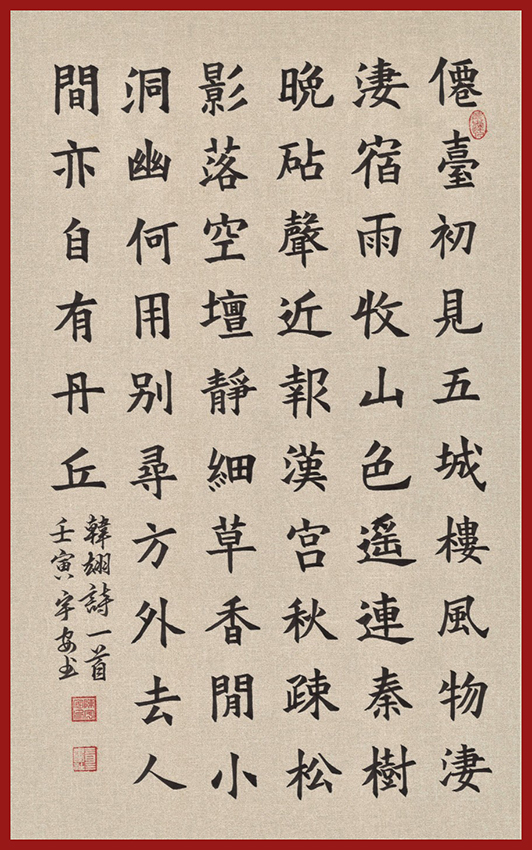 僊臺初見五城樓風物淒
淒宿雨收山色遥連秦樹
晚砧聲近報漢宮秋疎松
影落空壇靜細草香閒小
洞幽何用别尋方外去人
間亦自有丹丘
韓翃詩一首
壬寅宇安书